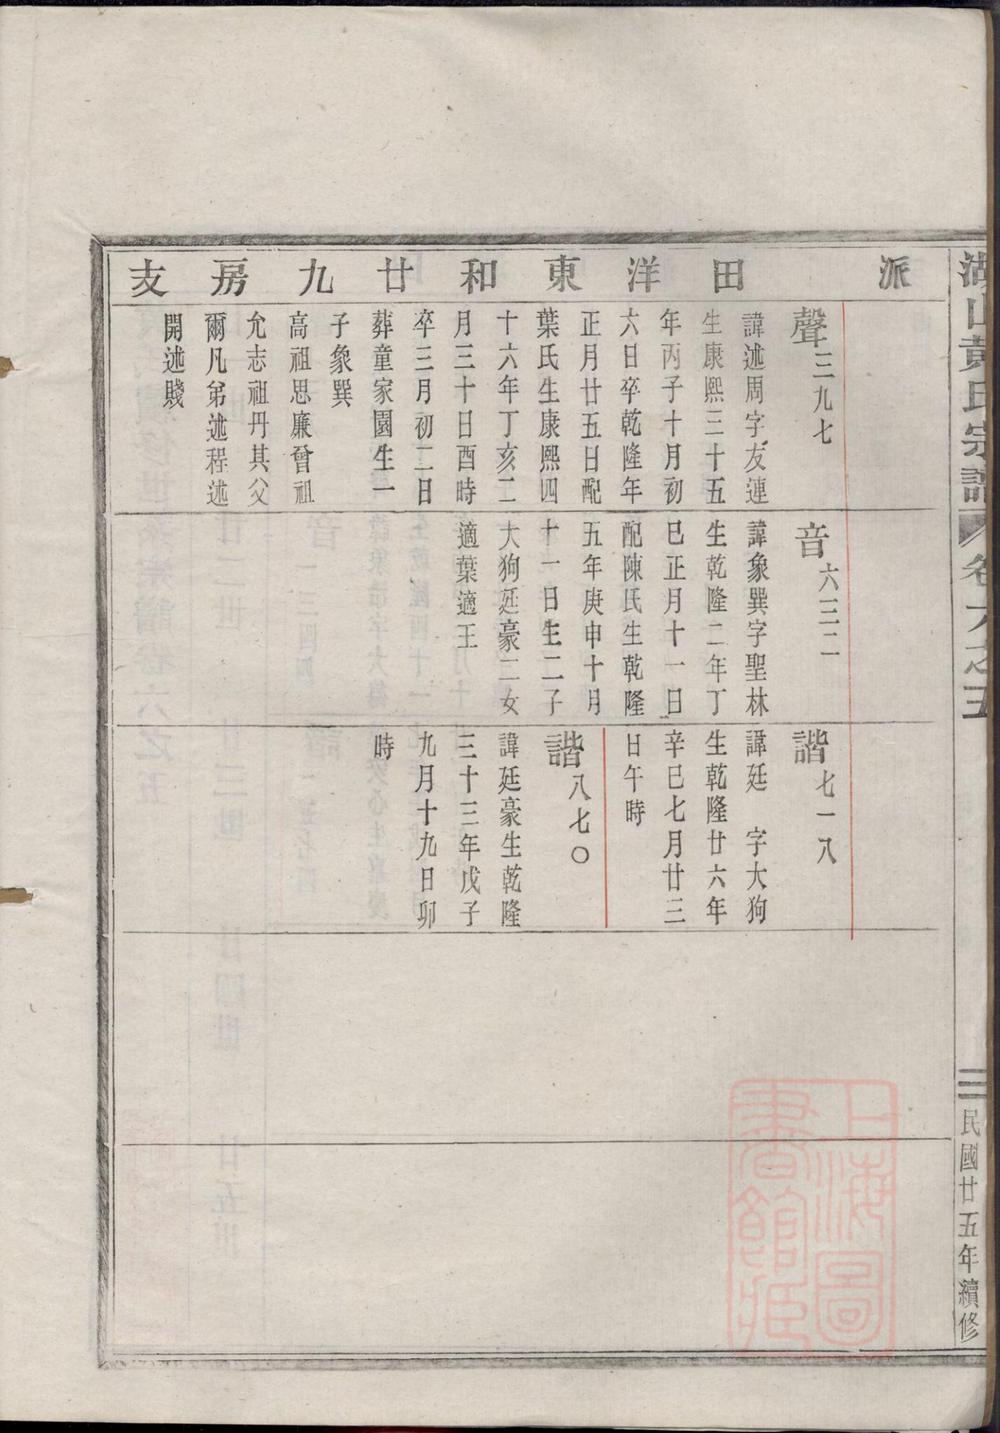 湖山黄氏宗譜 卷六之五
三 民國廿五年續修
派 田洋東和廿九房支
聲三九七
諱述周字友連
生康熙三十五
年丙子十月初
六日卒乾隆年
正月廿五日配
葉氏生康熙四
十六年丁亥二
月三十日酉時
卒三月初二日
葬童家園生一
子象巽
高祖思廉曾祖
允志祖丹其父
爾凡弟述程述
開述賤
音六三二
諱象巽字聖林
生乾隆二年丁
巳正月十一日
配陳氏生乾隆
五年庚申十月
十一日生二子
大狗廷豪二女
適葉適王
諧七一八
諱廷 字大狗
生乾隆廿六年
辛巳七月廿三
日午時
諧八七〇
諱廷豪生乾隆
三十三年戊子
九月十九日卯
時
上海圖
書館藏